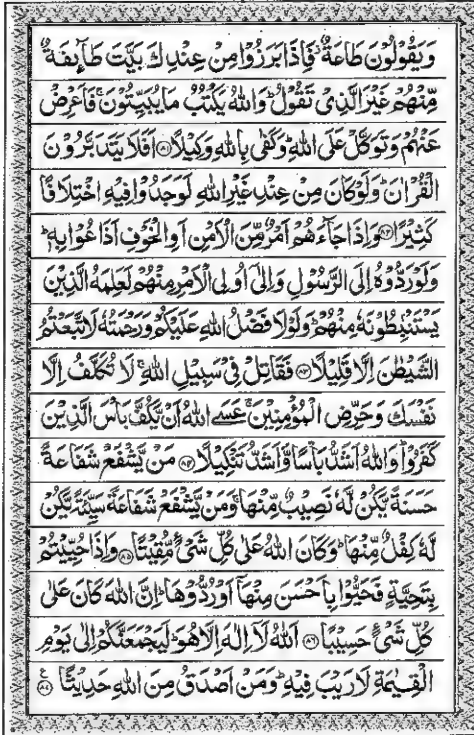 وَيَقُوۡلُوۡنَ طَاعَةٌ فَاِذَا بَرَزُوۡا مِنۡ عِنۡدِكَ بَيَّتَ طَآئِفَةٌ
مِّنۡهُمۡ غَيۡرَ الَّذِىۡ تَقُوۡلُ ؕ وَاللّٰهُ يَكۡتُبُ مَا يُبَيِّتُوۡنَ ۚ فَاَعۡرِضۡ
عَنۡهُمۡ وَتَوَكَّلۡ عَلَى اللّٰهِ ؕ وَكَفٰى بِاللّٰهِ وَكِيۡلًا ﴿۸۱﴾ اَفَلَا يَتَدَبَّرُوۡنَ
الۡقُرۡاٰنَ ؕ وَلَوۡ كَانَ مِنۡ عِنۡدِ غَيۡرِ اللّٰهِ لَوَجَدُوۡا فِيۡهِ اخۡتِلَافًا
كَثِيۡرًا ﴿۸۲﴾ وَاِذَا جَآءَهُمۡ اَمۡرٌ مِّنَ الۡاَمۡنِ اَوِ الۡخَوۡفِ اَذَاعُوۡا بِهٖ ؕ
وَلَوۡ رَدُّوۡهُ اِلَى الرَّسُوۡلِ وَاِلٰٓى اُولِى الۡاَمۡرِ مِنۡهُمۡ لَعَلِمَهُ الَّذِيۡنَ
يَسۡتَنۡۢبِطُوۡنَهٗ مِنۡهُمۡ ؕ وَلَوۡلَا فَضۡلُ اللّٰهِ عَلَيۡكُمۡ وَرَحۡمَتُهٗ لَاتَّبَعۡتُمُ
الشَّيۡطٰنَ اِلَّا قَلِيۡلًا ﴿۸۳﴾ فَقَاتِلۡ فِىۡ سَبِيۡلِ اللّٰهِ ۚ لَا تُكَلَّفُ اِلَّا
نَفۡسَكَ وَحَرِّضِ الۡمُؤۡمِنِيۡنَ ۚ عَسَے اللّٰهُ اَنۡ يَّكُفَّ بَاۡسَ الَّذِيۡنَ
كَفَرُوۡا ؕ وَاللّٰهُ اَشَدُّ بَاۡسًا وَّاَشَدُّ تَنۡكِيۡلًا ﴿۸۴﴾ مَنۡ يَّشۡفَعۡ شَفَاعَةً
حَسَنَةً يَّكُنۡ لَّهٗ نَصِيۡبٌ مِّنۡهَا ۚ وَمَنۡ يَّشۡفَعۡ شَفَاعَةً سَيِّئَةً يَّكُنۡ
لَّهٗ كِفۡلٌ مِّنۡهَا ؕ وَكَانَ اللّٰهُ عَلٰى كُلِّ شَىۡءٍ مُّقِيۡتًا ﴿۸۵﴾ وَاِذَا حُيِّيۡتُمۡ
بِتَحِيَّةٍ فَحَيُّوۡا بِاَحۡسَنَ مِنۡهَاۤ اَوۡ رُدُّوۡهَا ؕ اِنَّ اللّٰهَ كَانَ عَلٰى
كُلِّ شَىۡءٍ حَسِيۡبًا ﴿۸۶﴾ اَللّٰهُ لَاۤ اِلٰهَ اِلَّا هُوَ ؕ لَيَجۡمَعَنَّكُمۡ اِلٰى يَوۡمِ
الۡقِيٰمَةِ لَا رَيۡبَ فِيۡهِ ؕ وَمَنۡ اَصۡدَقُ مِنَ اللّٰهِ حَدِيۡثًا ﴿۸۷﴾ ع